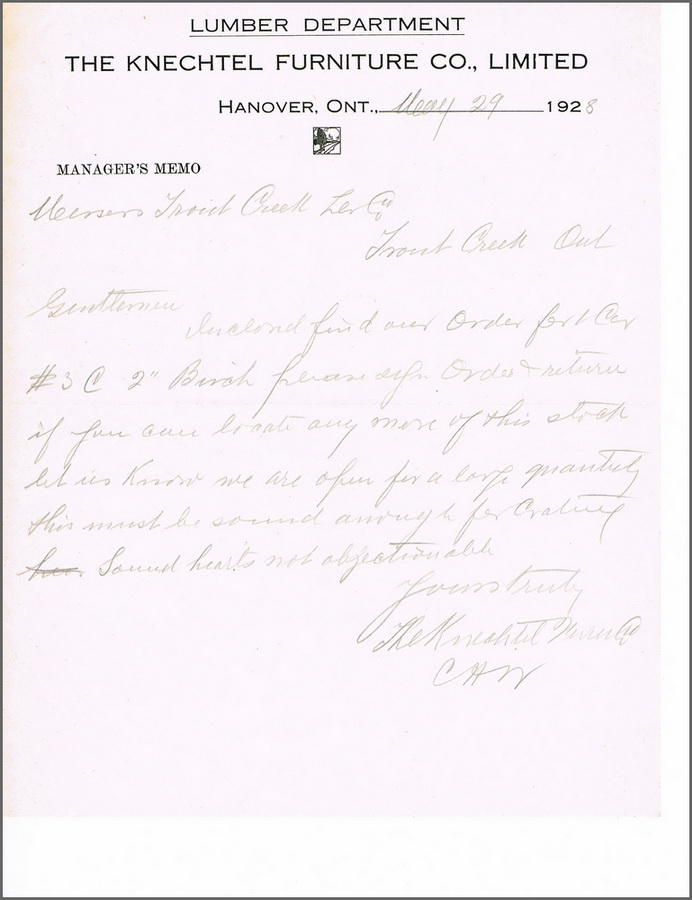 LUMBER DEPARTMENT
THE KNECHTEL FURNITURE CO., LIMITED
HANOVER, ONT., May 29 1928
MANAGER'S MEMO
Messers Trout Creek Lbr Co
Trout Creek Ont
Gentlemen
Inclosed find our Order for 1 Car
#3 C 2" Birch please sign Order & return
if you can locate any more of this stock
let us Know we are open for a large quantity
this must be sound anough for Crating
Sound hearts not objectionable
Yours truly
The Knechtel Furn Co
C H W